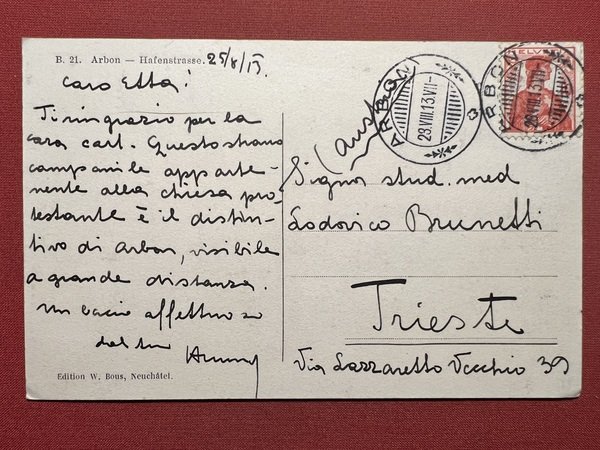 B. 21. Arbon — Hafenstrasse.
Caro Etta!
Ti ringrazio per la
cara cart. Questo strano
campanile apparte-
nente alla chiesa pro-
testante è il distin-
tivo di Arbon, visibile
a grande distanza.
Un bacio affettuoso
dal tuo
Edition W. Bous, Neuchâtel.
ARBON
29.VIII.13.VII-
HELVE
ARBON
29.VIII.13.VII-
(Austria)
Signor stud. med
Lodovico Brunetti
Trieste
Via Lazzaretto Vecchio 39